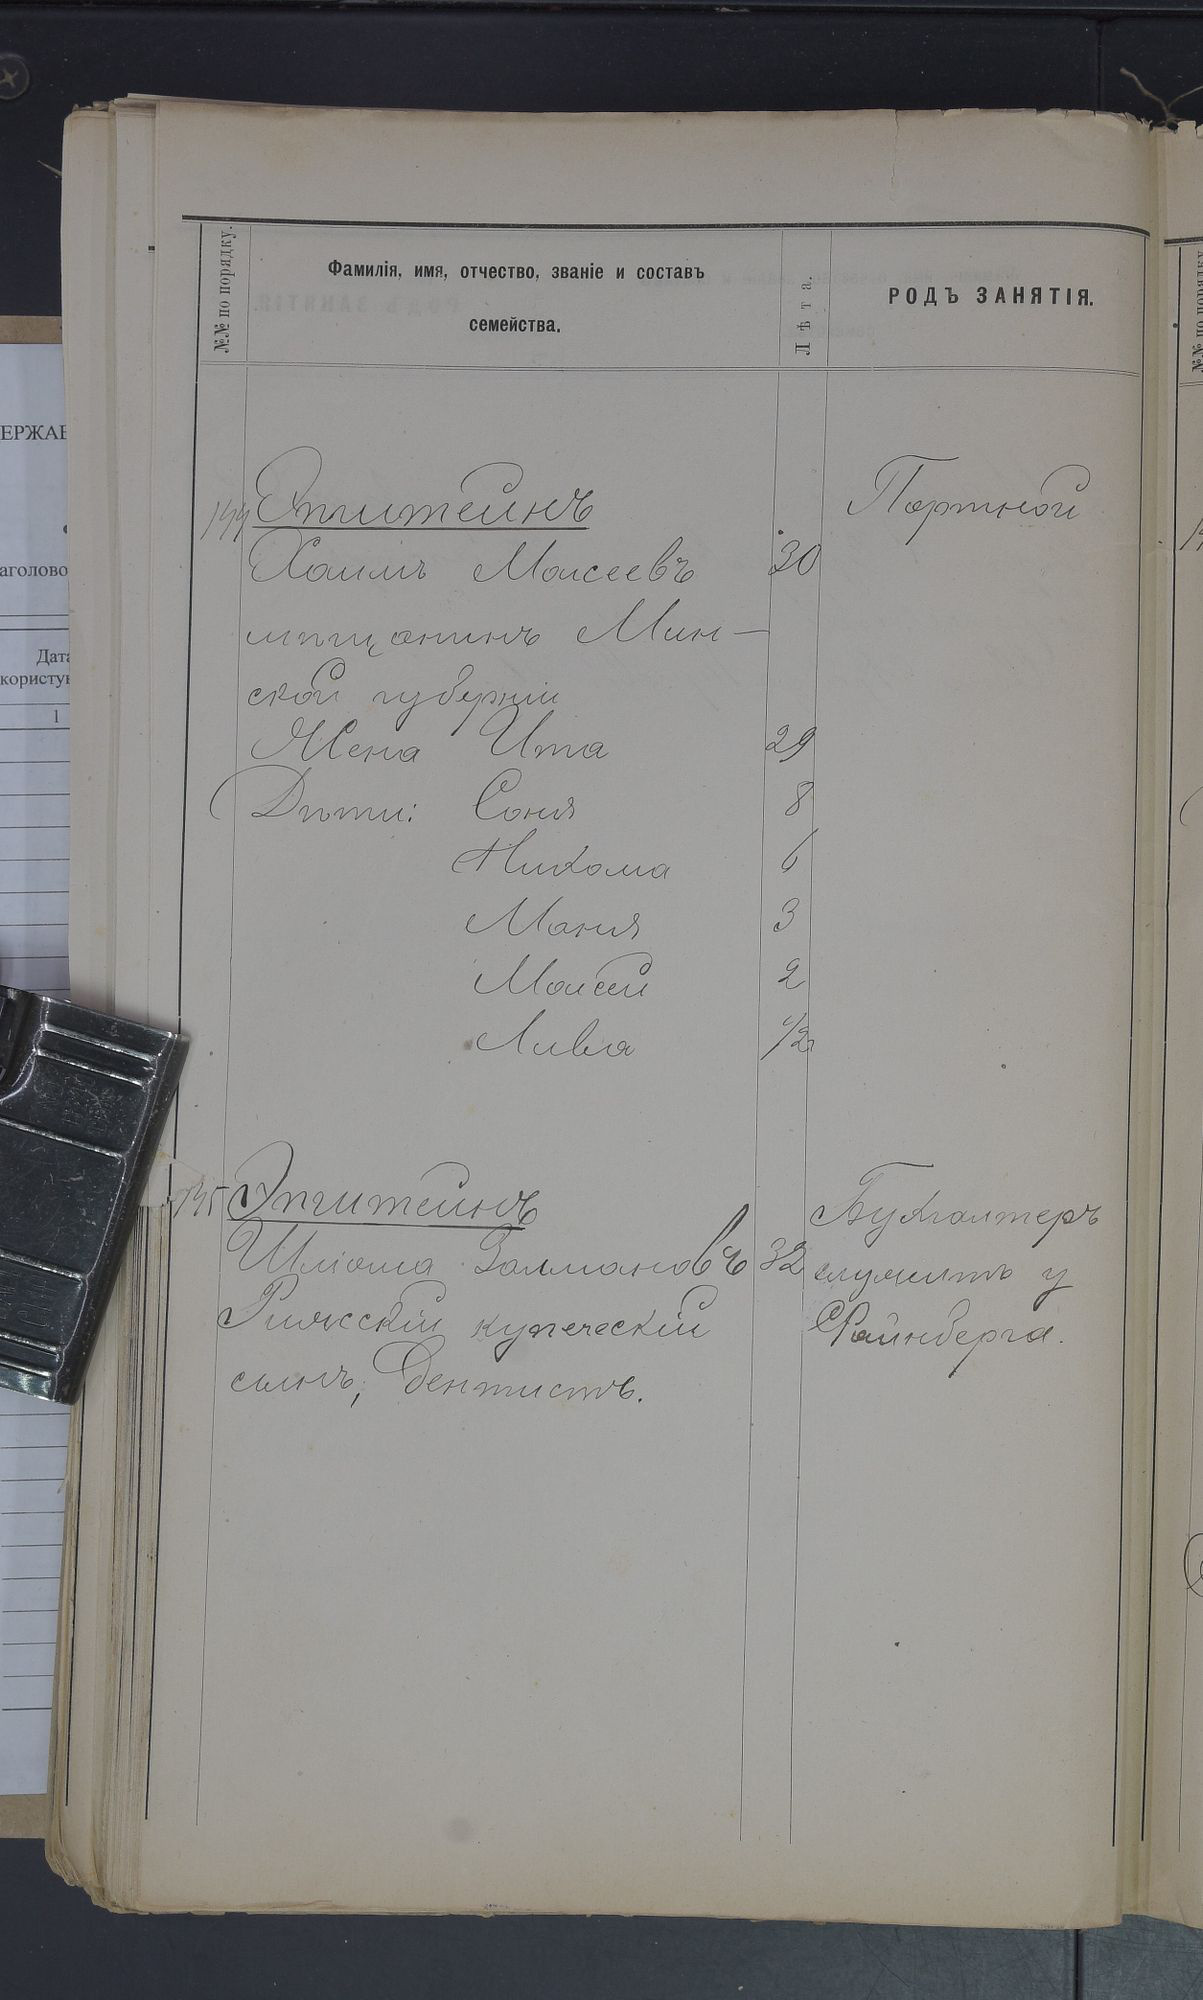 №№ по порядку.
Фамилія, имя, отчество, званіе и составъ
семейства.
Лѣта.
РОДЪ ЗАНЯТІЯ.
144 Эпштейнъ Портной
Хаимъ Моисеевъ 30
мѣщанинъ Мин-
ской губерніи
Жена Ита 29
Дѣти: Соня 8
Нихома 6
Маня 3
Моисей 2
Лива 1/2
145 Эпштейнъ Бухгалтеръ
Шліома Залмановъ 32 служитъ у
Ряжскій купеческій Файнберга.
сынъ, дентистъ.
ЕРЖАВ
аголово
Дата
користув
1
№№ по порядку